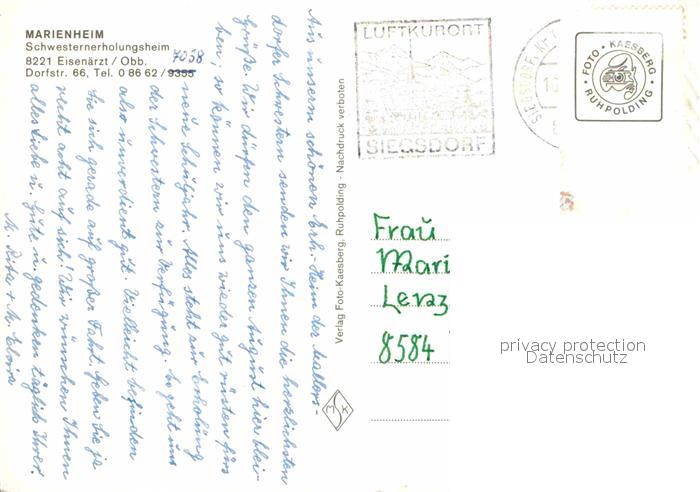 MARIENHEIM
Schwesternerholungsheim
8221 Eisenärzt / Obb. 7058
Dorfstr. 66, Tel. 0 86 62 / 9355
Aus unserm schönen Erh.-Heim der Mallers-
dorfer Schwestern senden wir Ihnen die herzlichsten
Grüße. Wir dürfen den ganzen August hier blei-
ben, so können wir uns wieder gut rüsten fürs
neue Schuljahr. Alles steht zur Erholung
der Schwestern zur Verfügung. So geht uns
also unverdient gut. Vielleicht befinden
Sie sich gerade auf großer Fahrt. Geben Sie ja
recht acht auf sich! Wir wünschen Ihnen
alles Liebe u. Gute u. gedenken täglich Ihrer.
M. + M.
Verlag Foto-Kaesberg, Ruhpolding - Nachdruck verboten
MK
LUFTKURORT
SIEGSDORF
SIEGSDORF
FOTO · KAESBERG · RUHPOLDING ·
Frau
Mari
Lenz
8584
privacy protection
Datenschutz